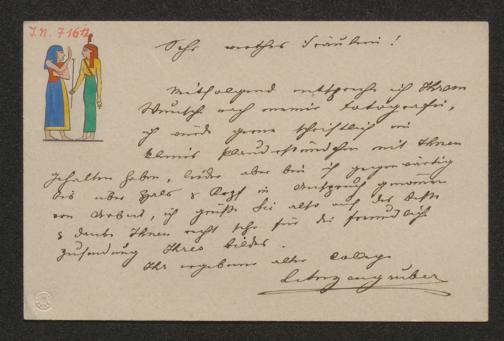 J.N. 71612
Sehr werthes Fräulein!
Mitfolgend entspreche ich Ihrem
Wunsch nach meiner Fotografie,
ich würde gerne schriftlich ein
kleines Plauderstündchen mit Ihnen
gehalten haben, leider aber bin ich gegenwärtig
bis über Hals & Kopf in Anspruch genommen
von Arbeit, ich grüße Sie also auf das Beste
& danke Ihnen recht sehr für die freundliche
Zusendung Ihres Bildes.
Ihr ergebener alter College
LAnzengruber